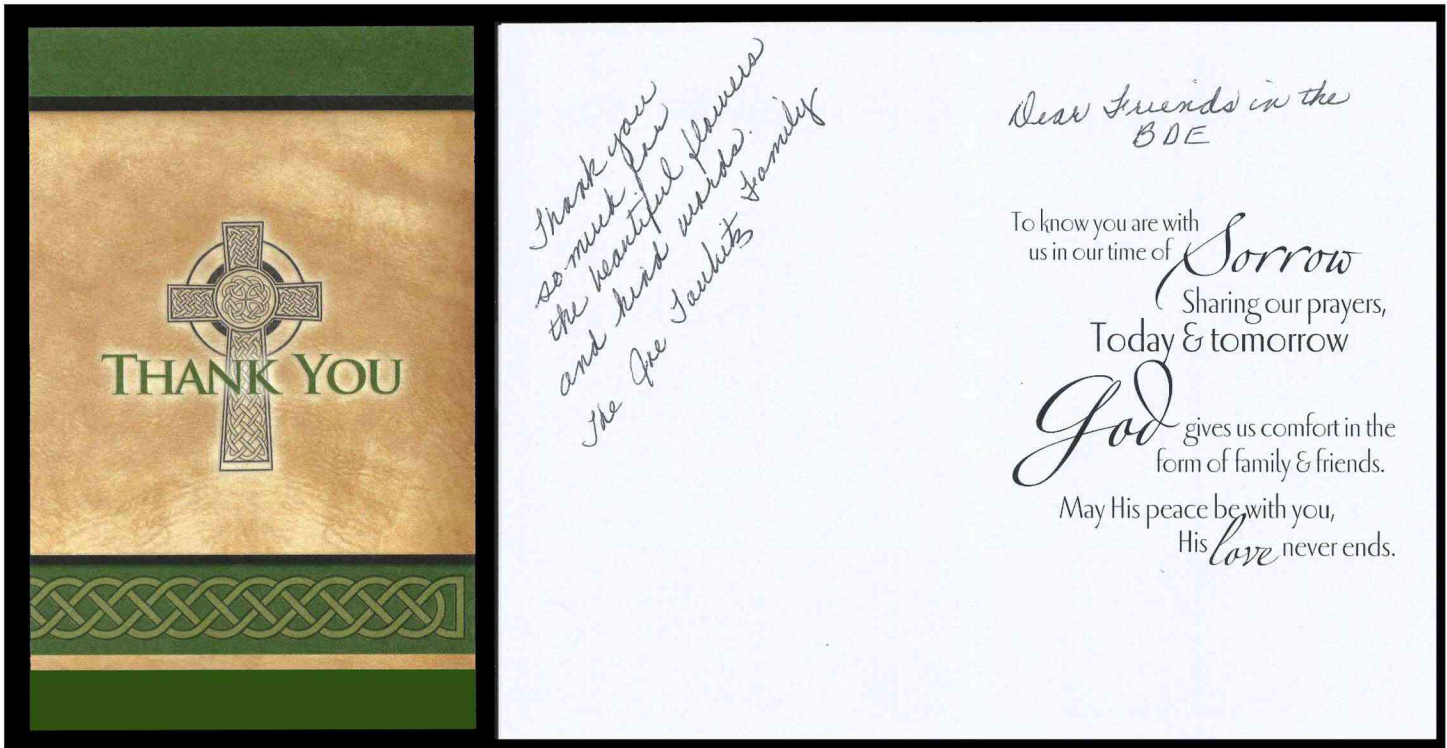 THANK YOU
Thank you
so much for
the beautiful flowers
and kind words.
The Joe Family
Dear Friends in the
BDE
To know you are with
us in our time of Sorrow
Sharing our prayers,
Today & tomorrow
God gives us comfort in the
form of family & friends.
May His peace be with you,
His love never ends.